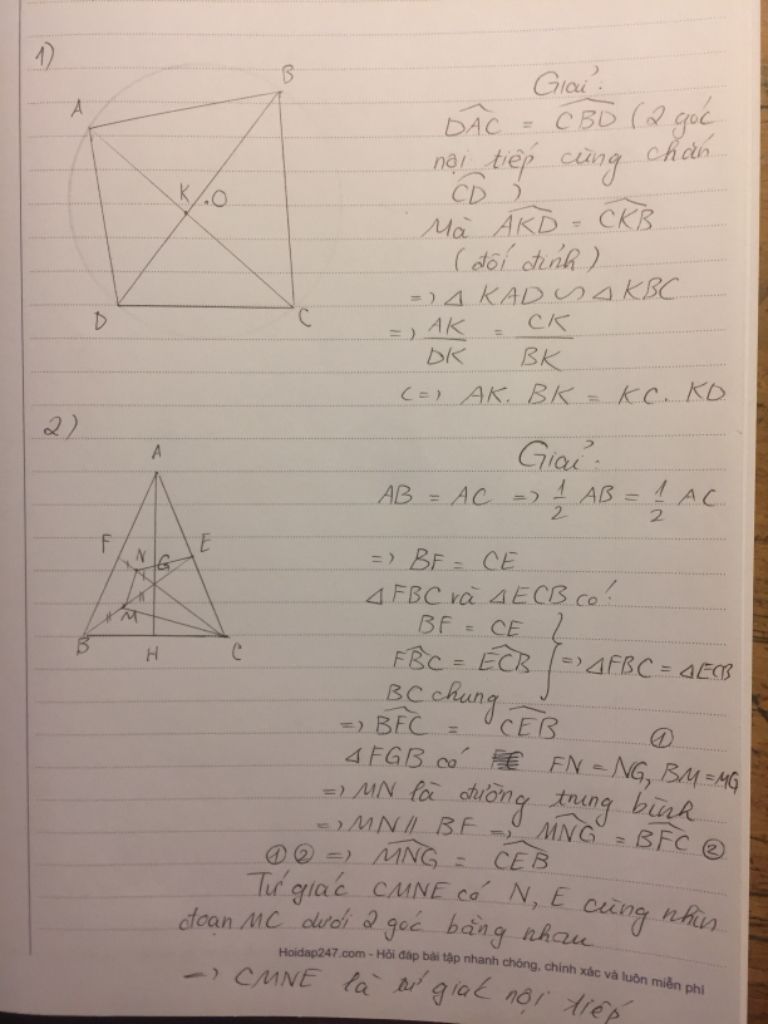 1)
A
B
K .O
D
C
Giải:
\widehat{DAC} = \widehat{CBD} (2 góc
nội tiếp cùng chắn
\widehat{CD} )
Mà \widehat{AKD} = \widehat{CKB}
(đối đỉnh)
=> △ KAD ∽ △ KBC
=> \frac{AK}{DK} = \frac{CK}{BK}
<=> AK. BK = KC. KD
2)
A
F
N
G
E
M
B
H
C
Giải:
AB = AC => \frac{1}{2} AB = \frac{1}{2} AC
=> BF = CE
△ FBC và △ ECB có:
BF = CE
\widehat{FBC} = \widehat{ECB} } => △FBC = △ECB
BC chung
=> \widehat{BFC} = \widehat{CEB} ①
△ FGB có FN = NG, BM = MG
=> MN là đường trung bình
=> MN // BF => \widehat{MNG} = \widehat{BFC} ②
① ② => \widehat{MNG} = \widehat{CEB}
Tứ giác CMNE có N, E cùng nhìn
đoạn MC dưới 2 góc bằng nhau
Hoidap247.com - Hỏi đáp bài tập nhanh chóng, chính xác và luôn miễn phí
=> CMNE là tứ giác nội tiếp